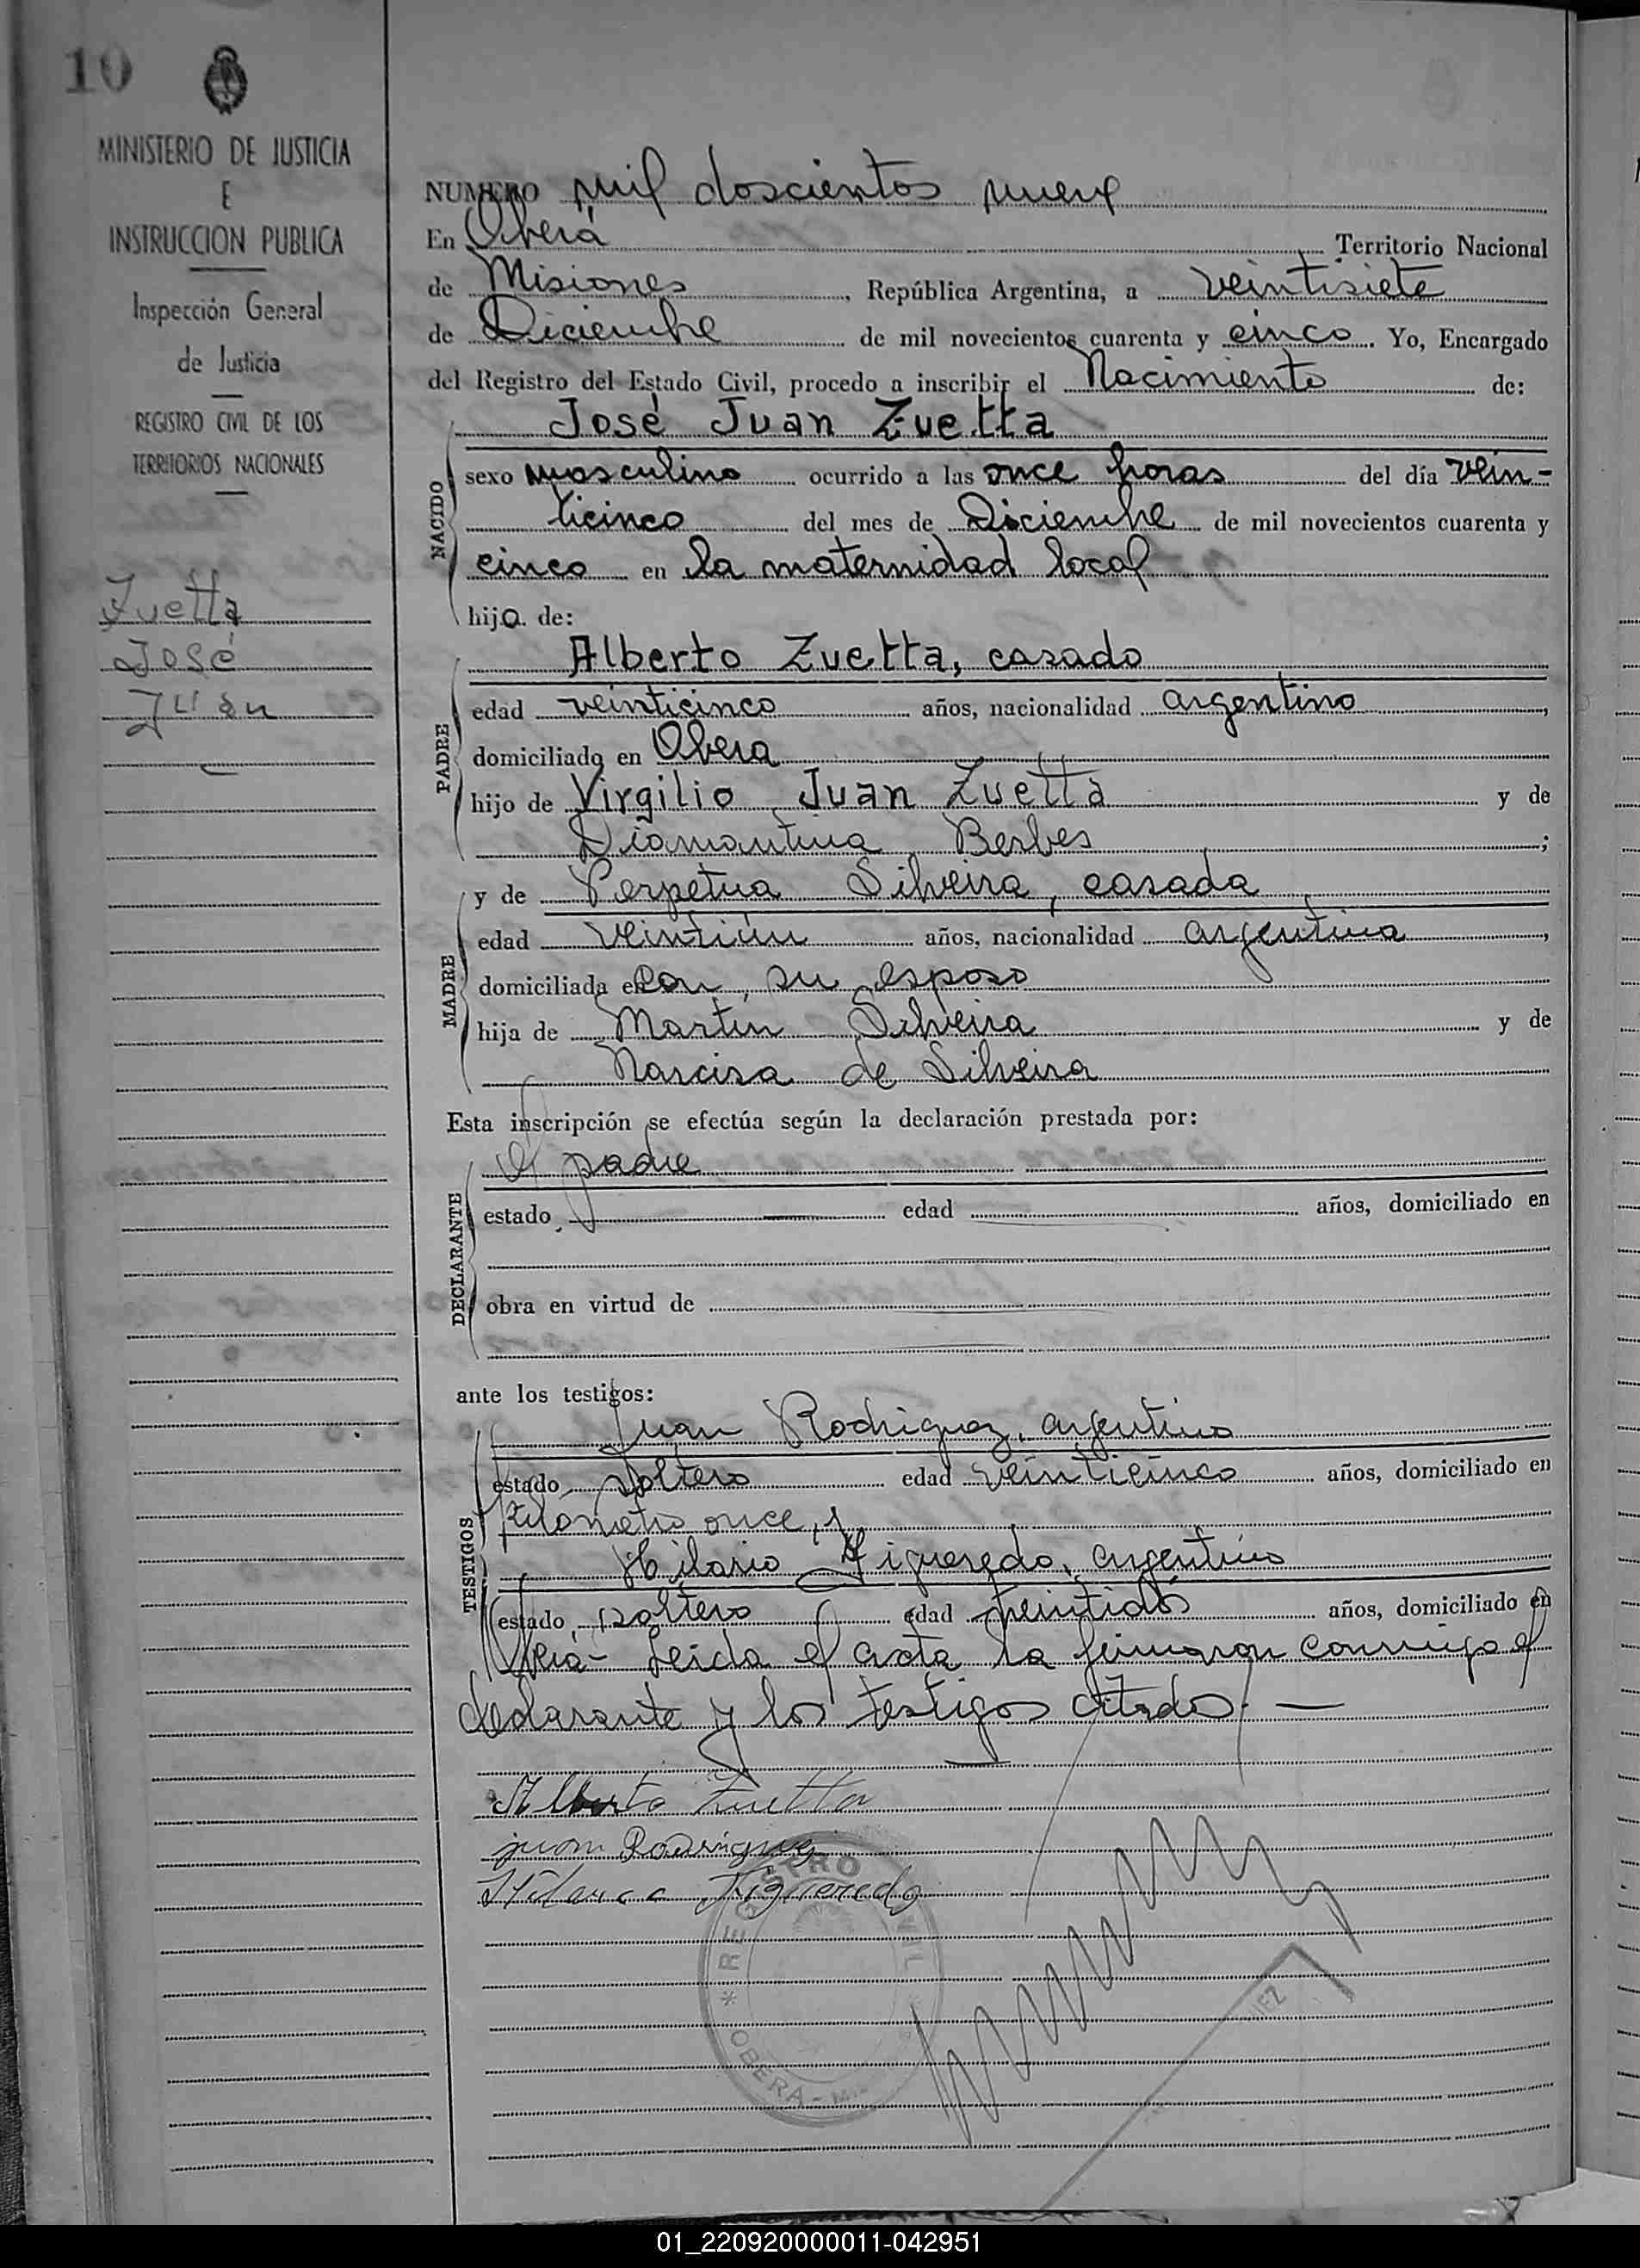 10
MINISTERIO DE JUSTICIA
E
INSTRUCCION PUBLICA
Inspección General
de Justicia
REGISTRO CIVIL DE LOS
TERRITORIOS NACIONALES
Zuetta
José
Juan
NUMERO mil doscientos nueve
En Oberá Territorio Nacional
de Misiones, República Argentina, a veintisiete
de Diciembre de mil novecientos cuarenta y cinco. Yo, Encargado
del Registro del Estado Civil, procedo a inscribir el Nacimiento de:
NACIDO
José Juan Zuetta
sexo masculino ocurrido a las once horas del día vein-
ticinco del mes de Diciembre de mil novecientos cuarenta y
cinco en la maternidad local
hijo. de:
PADRE
Alberto Zuetta, casado
edad veinticinco años, nacionalidad argentino,
domiciliado en Obera
hijo de Virgilio Juan Zuetta y de
Diamantina Berbes;
MADRE
y de Perpetua Silveira, casada
edad veintiún años, nacionalidad argentina,
domiciliada en con su esposo
hija de Martin Silveira y de
Narcisa de Silveira
Esta inscripción se efectúa según la declaración prestada por:
DECLARANTE
el padre
estado edad años, domiciliado en
obra en virtud de
ante los testigos:
TESTIGOS
Juan Rodriguez, argentino
estado soltero edad veinticinco años, domiciliado en
Kilometro once, y
Hilario Figueredo, argentino
estado, soltero edad treintidós años, domiciliado en
Oberá- Leida el acta la firmaron conmigo el
declarante y los testigos citados. —
Alberto Zuetta
juan Rodriguez
Hilario Figueredo
REGISTRO CIVIL
* OBERA - M
UEZ
01_220920000011-042951